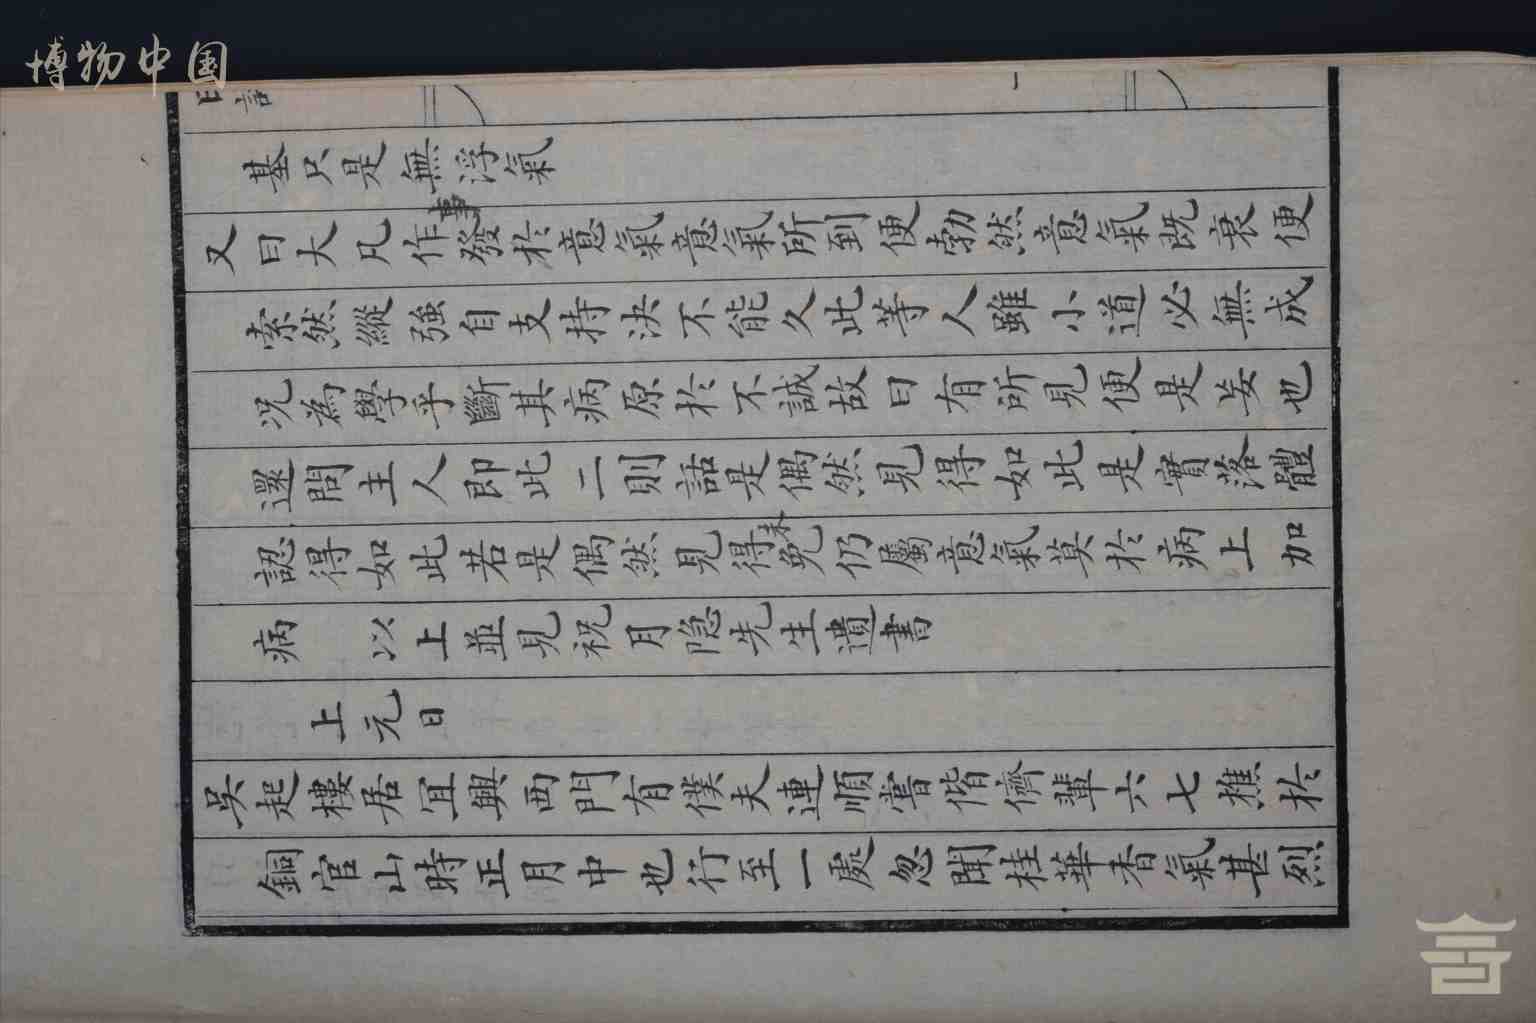 博物中国
基只是無浮氣
又曰大凡作事發於意氣意氣所到便勃然意氣既衰便
索然縱強自支持決不能久此等人雖小道必無成
況為學乎斷其病原於不誠故曰有所見便是妄也
還問主人即此二則話是偶然見得如此是實落體
認得如此若是偶然見得未免仍屬意氣莫於病上加
病　以上並見祝月隐先生遺書
上元日
吴起樓居宜興西門有僕夫連順嘗偕儕輩六七樵於
銅官山時正月中也行至一處忽聞桂華香氣甚烈